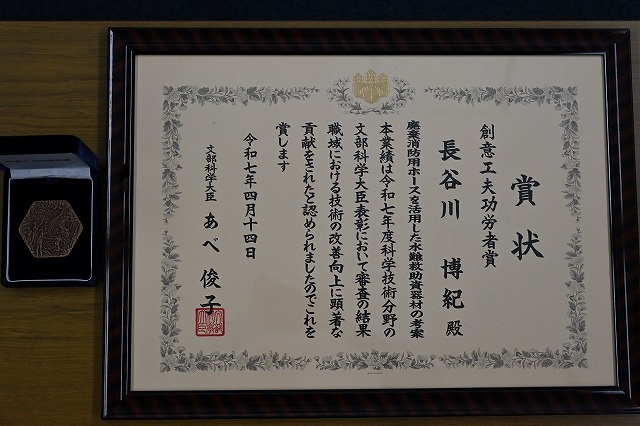 賞状
創意工夫功労者賞
長谷川 博紀 殿
廃棄消防用ホースを活用した水難救助資器材の考案
本業績は令和七年度科学技術分野の
文部科学大臣表彰において審査の結果
職域における技術の改善向上に顕著な
貢献をされたと認められましたのでこれを
賞します
令和七年四月十四日
文部科学大臣 あべ 俊子